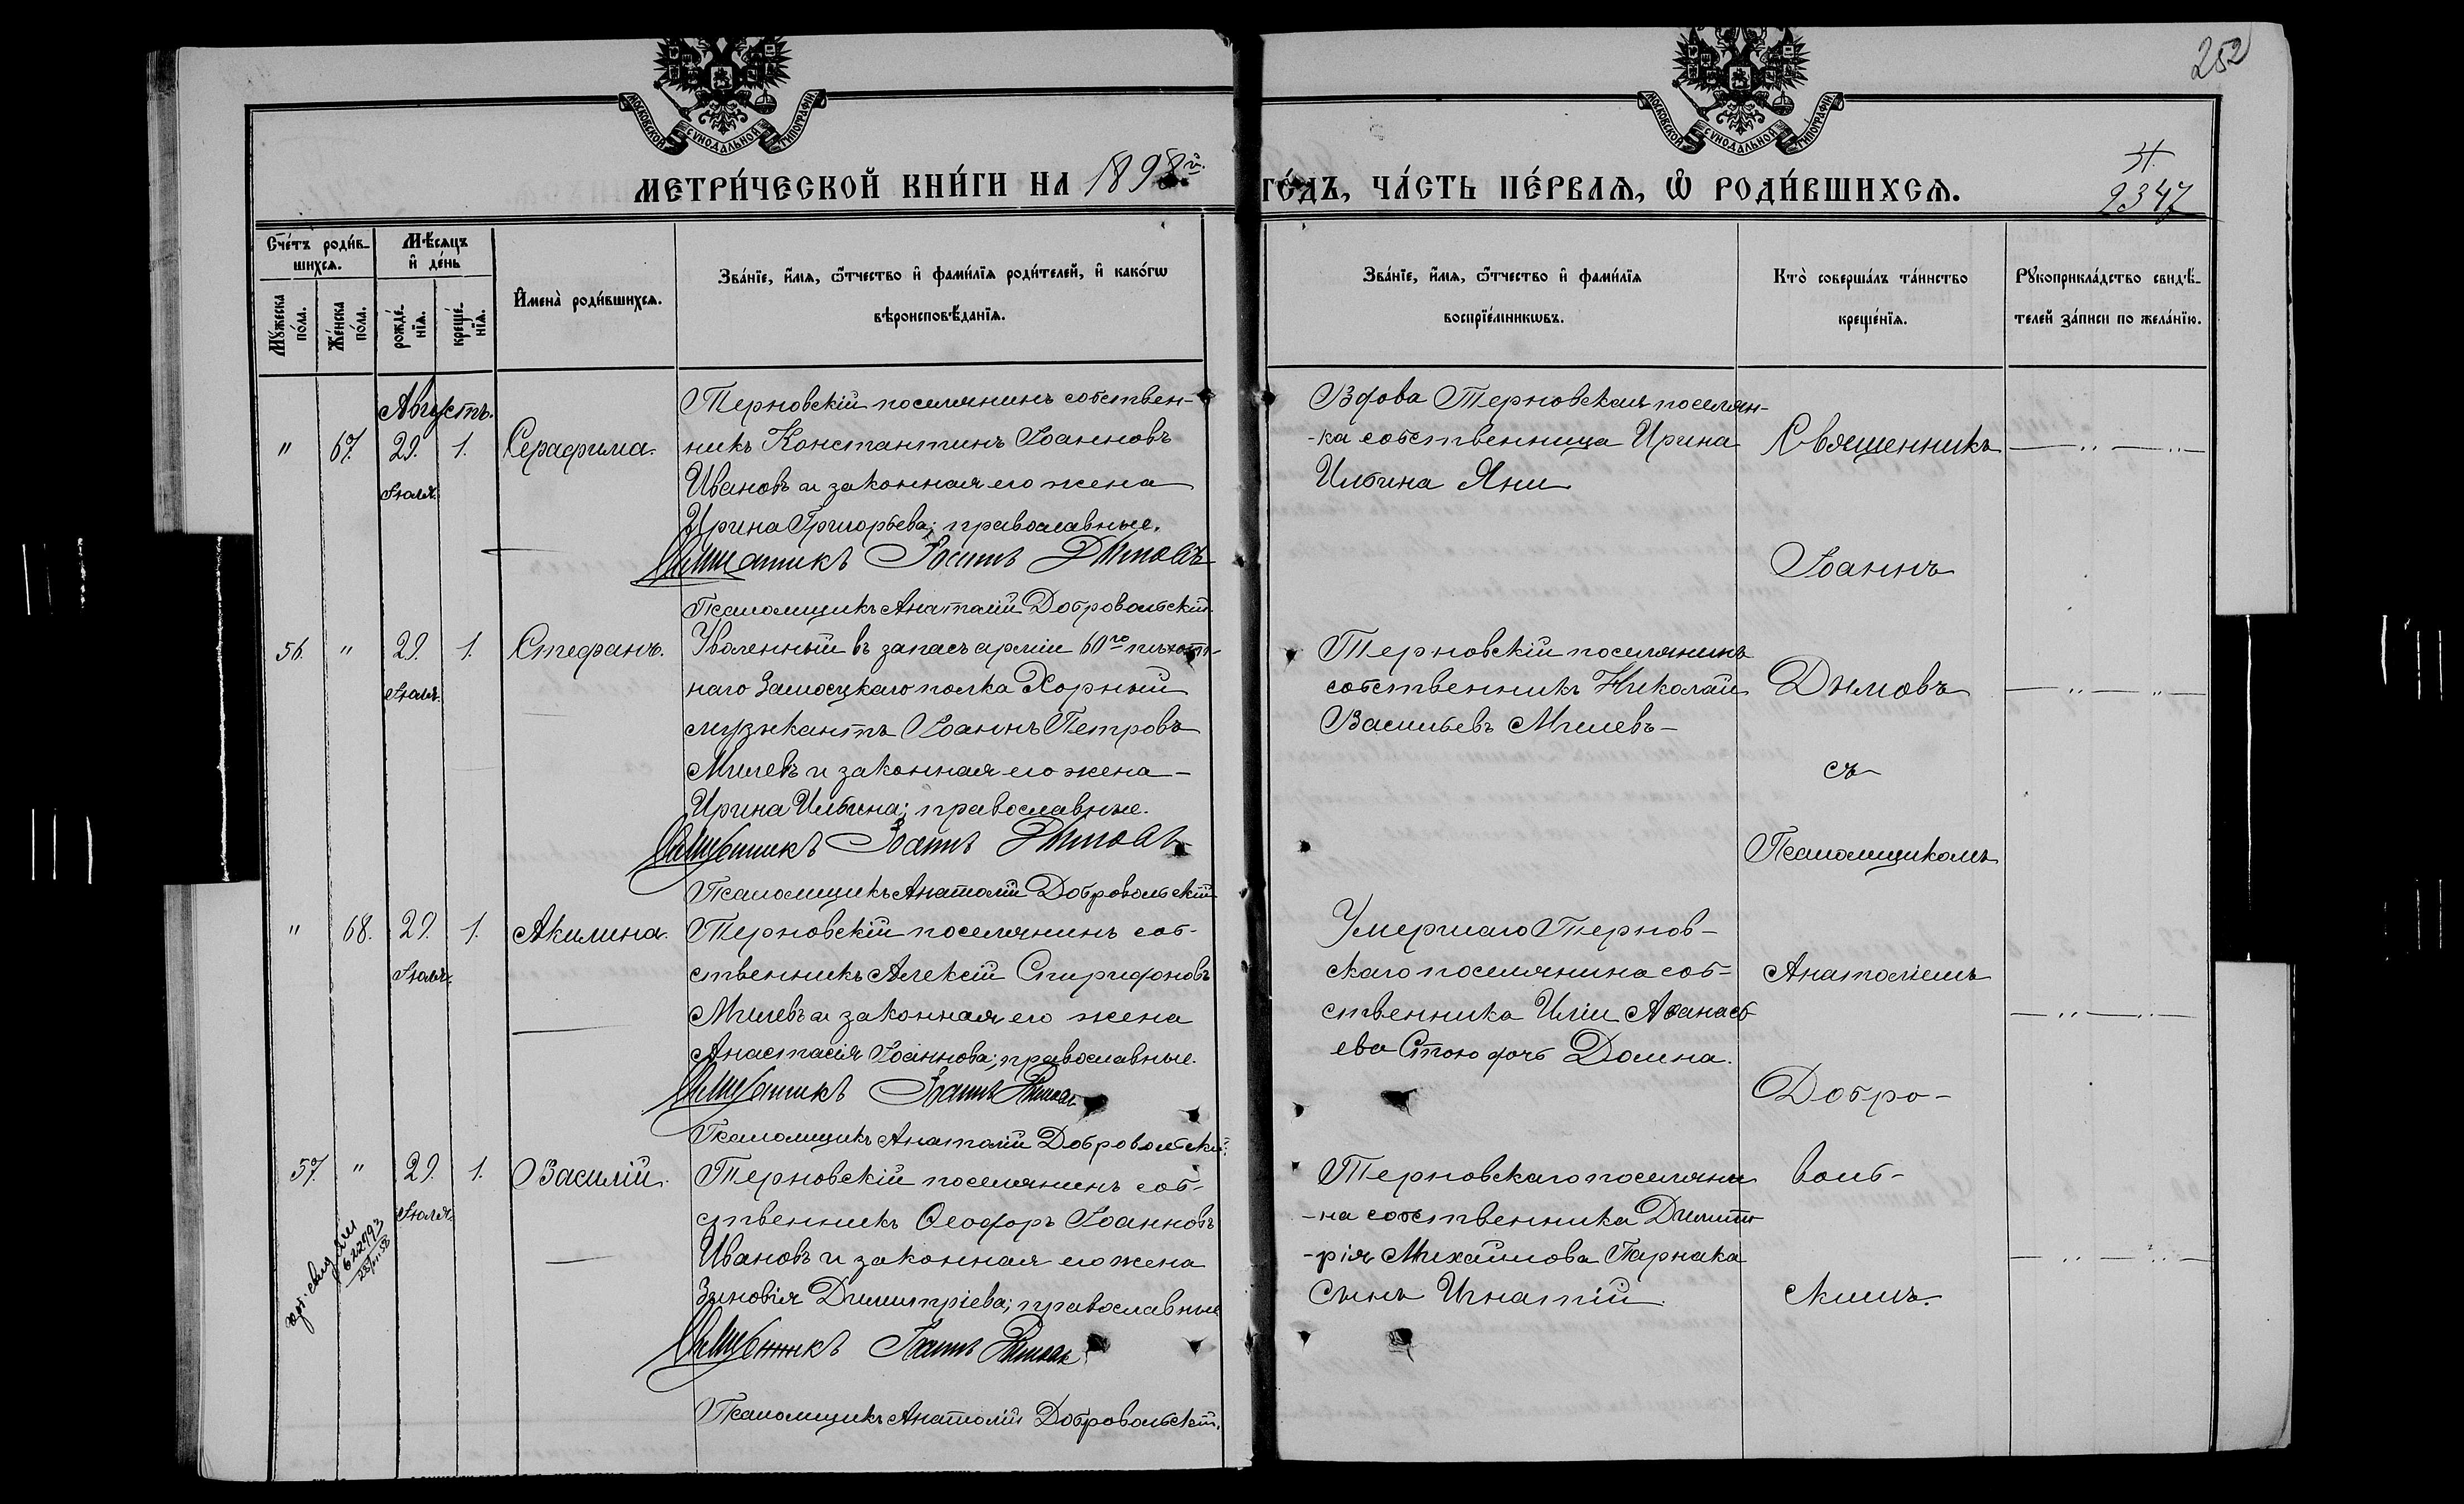 252
МОСКОВСКОЙ СѴНОДАЛЬНОЙ ТИПОГРАФІИ
МОСКОВСКОЙ СѴНОДАЛЬНОЙ ТИПОГРАФІИ
МЕТРИ́ЧЕСКОЙ КНИ́ГИ НА 1898й.
ГО́ДЪ, ЧА́СТЬ ПЕ́РВАѦ, Ѡ҆ РОДИ́ВШИХСѦ.
2347
Сче́тъ роди́в-
шихсѧ.
Мѣ́сѧцъ
и҆ де́нь
И҆мена̀ роди́вшихсѧ.
Зва́нїе, и҆́мѧ, ѻ҆́тчество и҆ фами́лїѧ роди́телей, и҆ како́гѡ
вѣроисповѣ́данїѧ.
Мꙋ́жеска
по́ла.
Же́нска
по́ла.
рожде́-
нїѧ.
креще́-
нїѧ.
Зва́нїе, и҆́мѧ, ѻ҆́тчество и҆ фами́лїѧ
воспрїе́мникѡвъ.
Кто̀ соверша́лъ та́инство
креще́нїѧ.
Рꙋкоприкла́дство свидѣ́-
телей за́писи по жела́нїю.
Августъ.
" 67. 29. 1. Серафима.
Іюля.
Терновскій поселянинъ собствен-
никъ Константинъ Іоанновъ
Ивановъ и законная его жена
Ирина Григорьева; православные.
Священникъ Іоаннъ Дымовъ
Псаломщикъ Анатолій Добровольскій.
Вдова Терновская поселян-
-ка собственница Ирина
Ильина Яни
Священникъ
Іоаннъ
56. " 29. 1. Стефанъ.
Іюля.
Уволенный въ запасъ арміи 60го пѣхот-
наго Замосцкаго полка Хорный
музыкантъ Іоаннъ Петровъ
Милевъ и законная его жена -
Ирина Ильина; православные.
Священникъ Іоаннъ Дымовъ
Псаломщикъ Анатолій Добровольскій
Терновскій поселянинъ
собственникъ Николай
Васильевъ Милевъ -
Дымовъ
съ
Псаломщикомъ
" 68. 29. 1. Акилина.
Іюля.
Терновскій поселянинъ соб-
ственникъ Алексій Спиридоновъ
Милевъ и законная его жена
Анастасія Іоаннова; православные.
Священникъ Іоаннъ Дымовъ
Псаломщикъ Анатолій Добровольскій.
Умершаго Тернов-
скаго поселянина соб-
ственника Иліи Аѳанась
ева Стою дочь Домна.
Анатоліемъ
Добро-
57. " 29. 1. Василій.
Іюля.
Терновскій поселянинъ соб-
ственникъ Ѳеодоръ Іоанновъ
Ивановъ и законная его жена
Зиновія Димитріева; православные
Священникъ Іоаннъ Дымовъ
Псаломщикъ Анатолій Добровольскій.
Терновскаго поселяни
-на собственника Димит
-рія Михайлова Парнака
сынъ Игнатій.
воль-
скимъ.